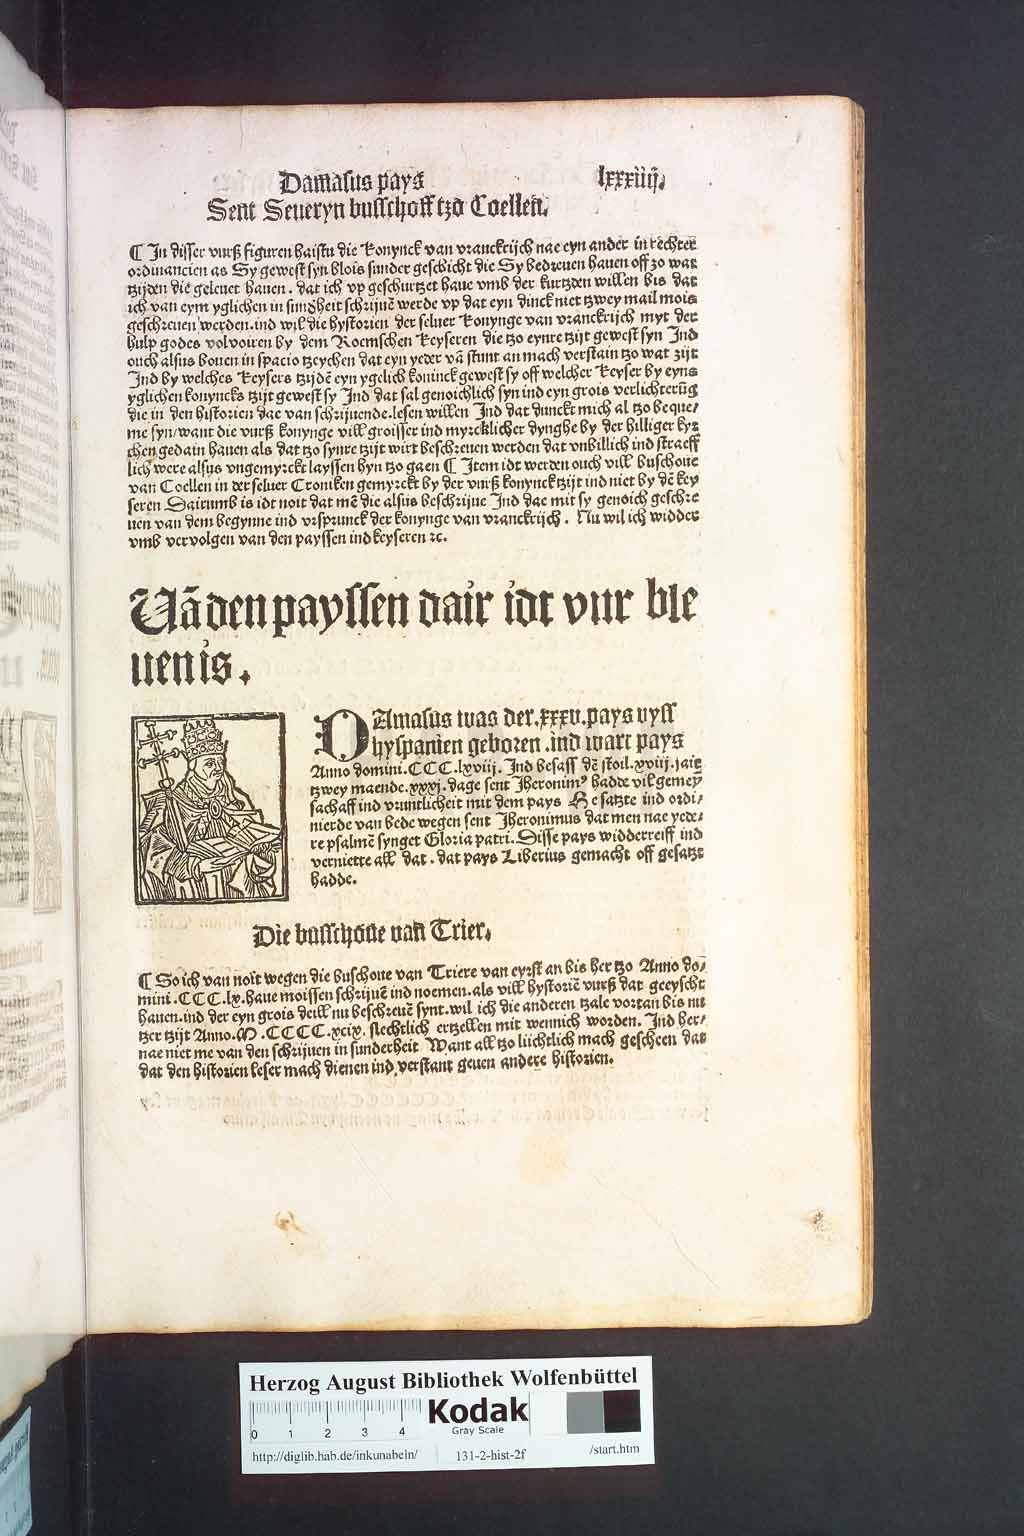 Damasus pays lxxxiiij.
Sent Seueryn busschoff tzo Coellen.
¶ In disser vurß figuren haistu die Konynck van vranckrijch nae eyn ander in rechter
ordinancien as Sy gewest syn blois sunder geschicht die Sy bedreuen hauen off zo wat
tzijden die geleuet hauen. dat ich vp geschurtzet haue vmb der kurtzden willen bis dat
ich van eym yglichen in sundheit schrijuẽ werde vp dat eyn dinck niet tzwey mail mois
geschreuen werden. ind wil die hystorien der seluer Konynge van vranckrijch myt der
hulp godes volvoiren by dem Roemschen Keyseren die tzo eynre tzijt gewest syn Ind
ouch alsus bouen in spacio tzeychen dat eyn yeder vã stunt an mach verstain tzo wat zijt
Ind by welches Keysers tzijdẽ eyn ygelich koninck gewest sy off welcher Keyser by eyns
yglichen konyncks tzijt gewest sy Ind dat sal genoichlich syn ind eyn grois verlichterũg
die in den historien dae van schrijuende. lesen willen Ind dat dunckt mich al tzo beque/
me syn/want die vurß konynge vill groisser ind myrcklicher dynghe by der hilliger kyr
chen gedain hauen als dat tzo synre tzijt wirt beschreuen werden dat vnbillich ind straeff
lich were alsus vngemyrckt layssen hyn tzo gaen ¶ Item idt werden ouch vill buschoue
van Coellen in der seluer Croniken gemyrckt by der vurß konynck tzijt ind niet by dẽ key
seren Dairumb is idt noit dat mẽ die alsus beschrijue Ind dae mit sy genoich geschre
uen van dem begynne ind vrsprunck der konynge van vranckrijch. Nu wil ich widder
vmb vervolgen van den payssen ind keyseren ꝛc.
Uã den payssen dair idt vur ble
uen is.
DAmasus was der .xxxv. pays vyss
hyspanien geboren .ind wart pays
Anno domini .CCC.lxviij. Ind besass dẽ stoil .xviij. jair
tzwey maende. xxxj. dage sent Jheronimꝰ hadde vil gemey
sachaff ind vruntlicheit mit dem pays He satzte ind ordi/
nierde van bede wegen sent Jheronimus dat men nae yede/
re psalmẽ synget Gloria patri. Disse pays widderreiff ind
verniette all dat. dat pays Liberius gemacht off gesatzt
hadde.
Die busschoue van Trier.
¶ So ich van noit wegen die buschoue van Triere van eyrst an bis her tzo Anno do/
mini .CCC.lx. haue moissen schrijuẽ ind noemen. als vill hystoriẽ vurß dat geeyscht
hauen. ind der eyn grois deill nu beschreuẽ synt. wil ich die anderen tzale vortan bis nu
tzer tzijt Anno. M.CCCC.xcix. slechtlich ertzellen mit wennich worden. Ind her/
nae niet me van den schrijuen in sunderheit Want all tzo liichtlich mach gescheen dat
dat den historien leser mach dienen ind verstant geuen andere historien.
Herzog August Bibliothek Wolfenbüttel
0 1 2 3 4
Kodak
Gray Scale
http://diglib.hab.de/inkunabeln/ 131-2-hist-2f /start.htm